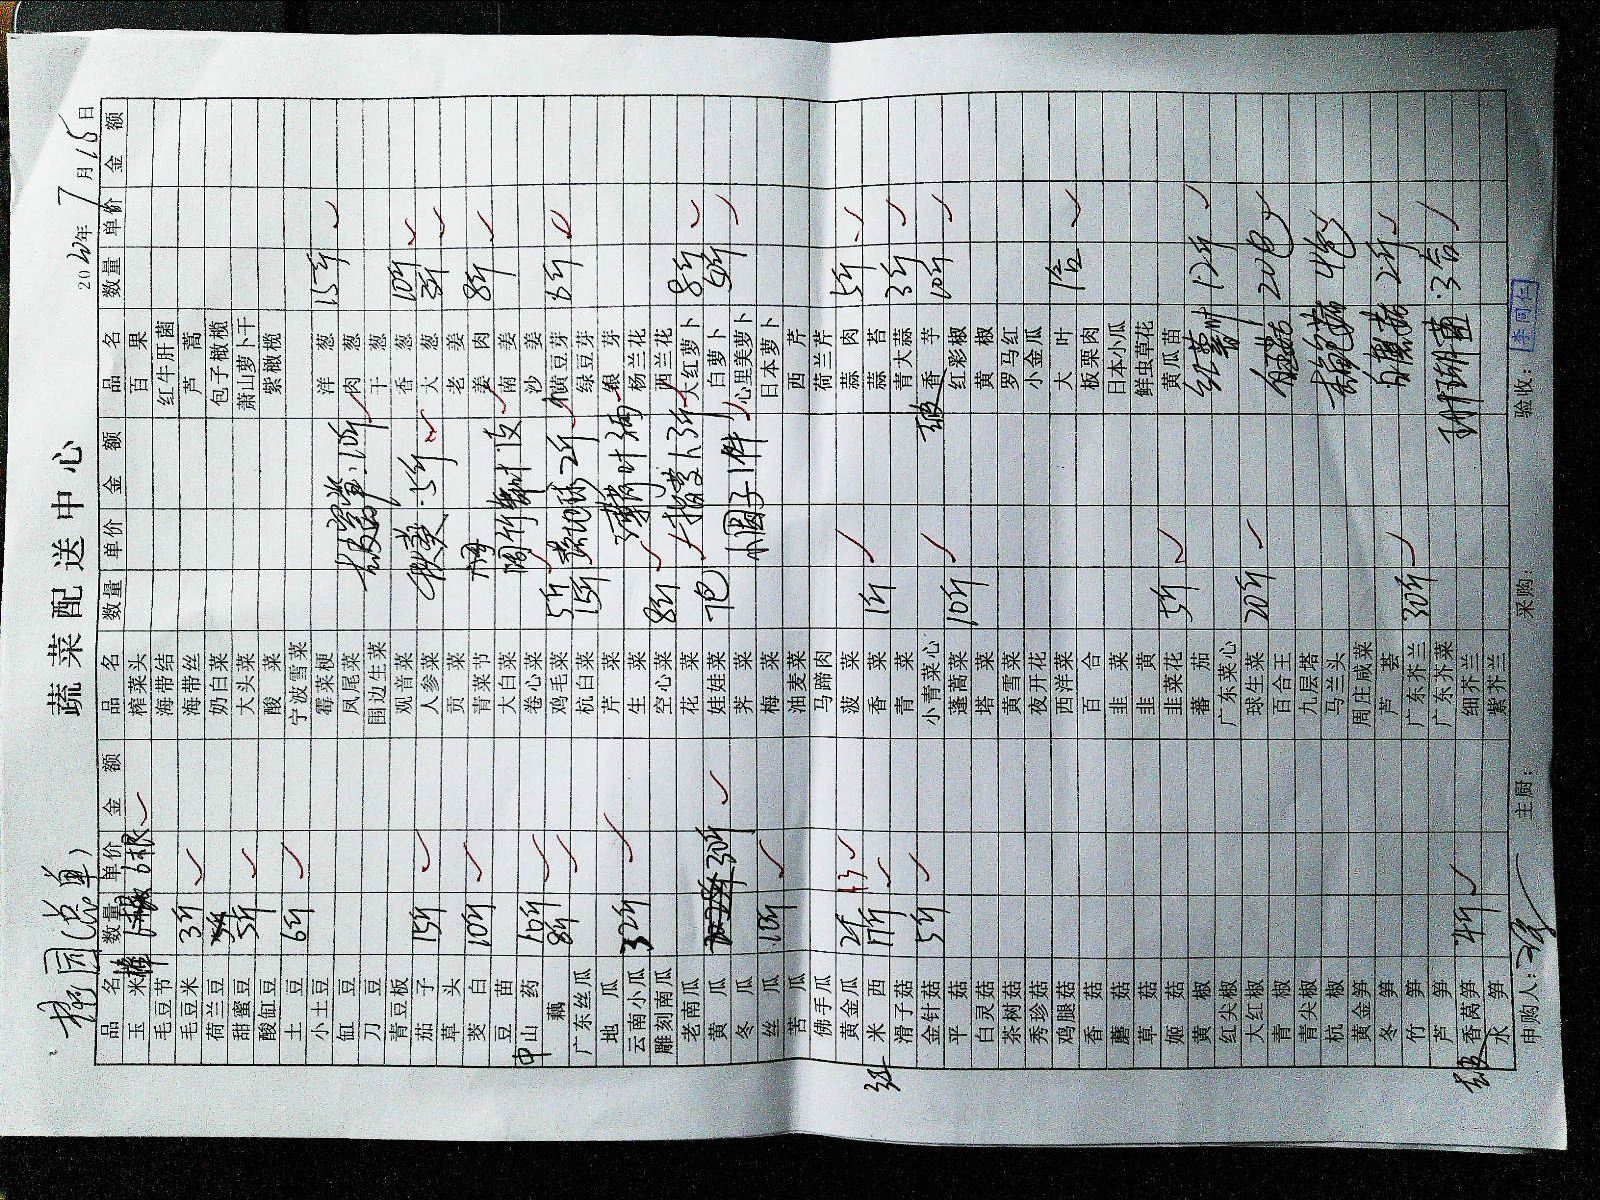 蔬菜配送中心
2020年7月15日
品名 数量 单价 金额 品名 数量 单价 金额 品名 数量 单价 金额
玉米棒 6根 榨菜头 百果
毛豆节 海带结 红牛肝菌
毛豆米 3斤 海带丝 芦蒿
荷兰豆 奶白菜 包子橄榄
甜蜜豆 5斤 大头菜 萧山萝卜干
酸缸豆 酸菜 紫橄榄
土豆 6斤 宁波雪菜
小土豆 霉菜梗 洋葱 15斤
缸豆 凤尾菜 肉葱
刀豆 围边生菜 干葱
青豆板 观音菜 香葱 10斤
茄子 15斤 人参菜 秋葵 5斤 大葱 3斤
草头 贡菜 老姜
茭白 10斤 青菜节 姜肉 8斤
豆苗 大白菜 南姜
山药 10斤 卷心菜 沙姜
藕 8斤 鸡毛菜 5斤 黄豆芽 6斤
广东丝瓜 杭白菜 15斤 绿豆芽
地瓜 芹菜 薄荷叶 银芽
云南小瓜 32斤 生菜 杨兰花
雕刻南瓜 空心菜 8斤 西兰花
老南瓜 花菜 大红萝卜 8斤
黄瓜 30斤 娃娃菜 7包 白萝卜 5斤
冬瓜 荠菜 小圆子1件 心里美萝卜
丝瓜 10斤 梅菜 日本萝卜
苦瓜 油麦菜 西芹
佛手瓜 马蹄肉 荷兰芹
黄金瓜 2斤 菠菜 蒜肉 5斤
米西 17斤 香菜 1斤 蒜苔
滑子菇 青菜 青大蒜 3斤
金针菇 5斤 小青菜心 香芋 10斤
平菇 蓬蒿菜 10斤 红彩椒
白灵菇 塔菜 黄椒
茶树菇 黄雪菜 罗马红
秀珍菇 夜开花 小金瓜
鸡腿菇 西洋菜 大叶 1合
香菇 百合 板栗肉
蘑菇 韭菜 日本小瓜
草菇 韭黄 鲜虫草花
姬菇 韭菜花 5斤 黄瓜苗
黄椒 蕃茄 红薯叶 12斤
红尖椒 广东菜心
大红椒 球生菜 20斤 白玉菇 20包
青椒 百合王
青尖椒 九层塔 4包
杭椒 马兰头
黄金笋 周庄咸菜 2斤
冬笋 芦荟
竹笋 广东芥兰 30斤
芦笋 广东芥菜 珊瑚菌 3合
香莴笋 4斤 细芥兰
水笋 紫芥兰
申购人： 主厨： 采购： 验收：